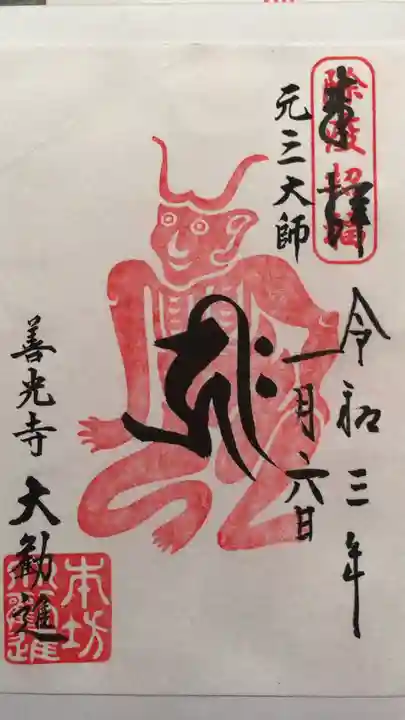 奉拝
除疫招福
元三大師
令和三年
一月六日
善光寺
大勧進
本坊
大勧進